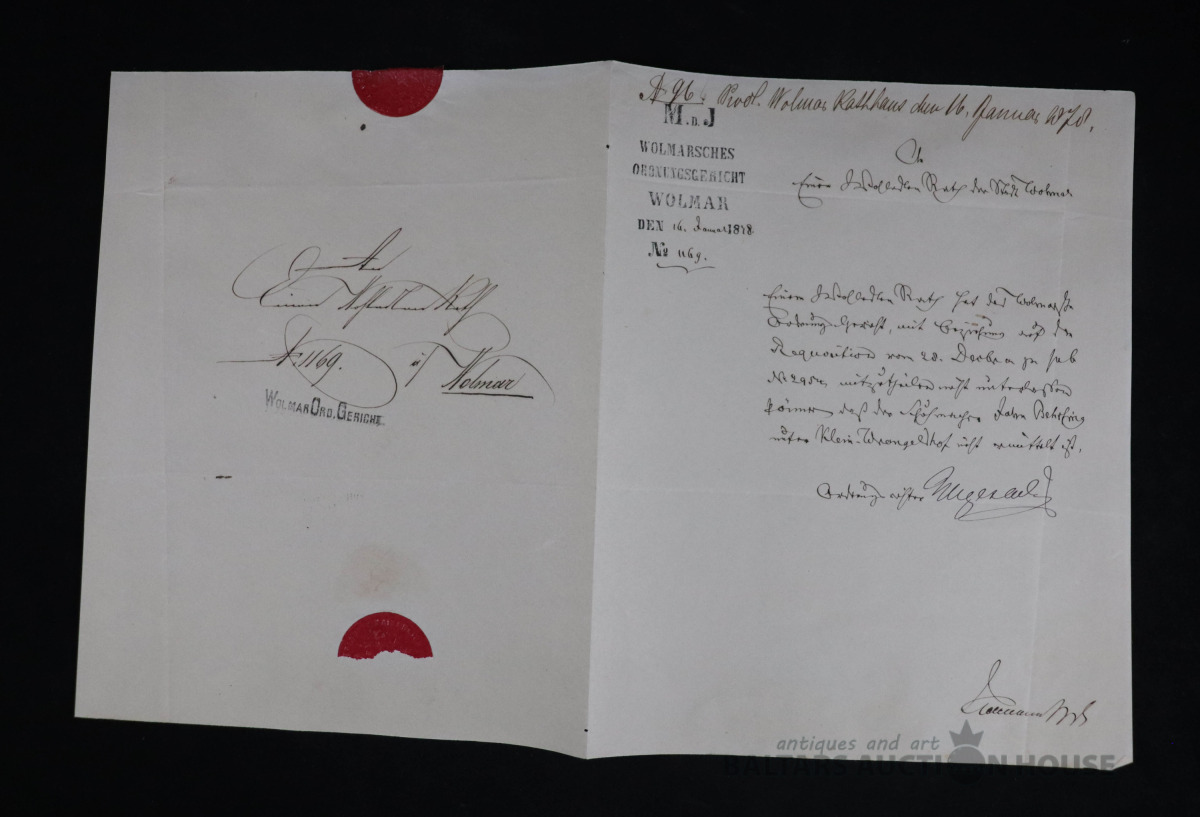 An
Einen Wohledlen Rath
№ 1169.
zu
Wolmar
WOLMAR ORD. GERICHT.
№ 96. Prod. Wolmar Rathhaus den 16. Januar 1878.
M. D. J
WOLMARSCHES
ORDNUNGSGERICHT
WOLMAR
DEN 16. Januar 1878
№ 1169.
An
Einen Wohledlen Rath der Stadt Wolmar
Einem Wohledlen Rath hat das Wolmarsche
Ordnungsgericht, mit Beziehung auf die
Requisition vom 28. Decbr. sub
№ mitzutheilen nicht unterlassen
können daß der Schuhmacher Jahn
unter Klein-Wrangelshof nicht ermittelt ist.
Ordnungsrichter
antiques and art
BALTARS AUCTION HOUSE